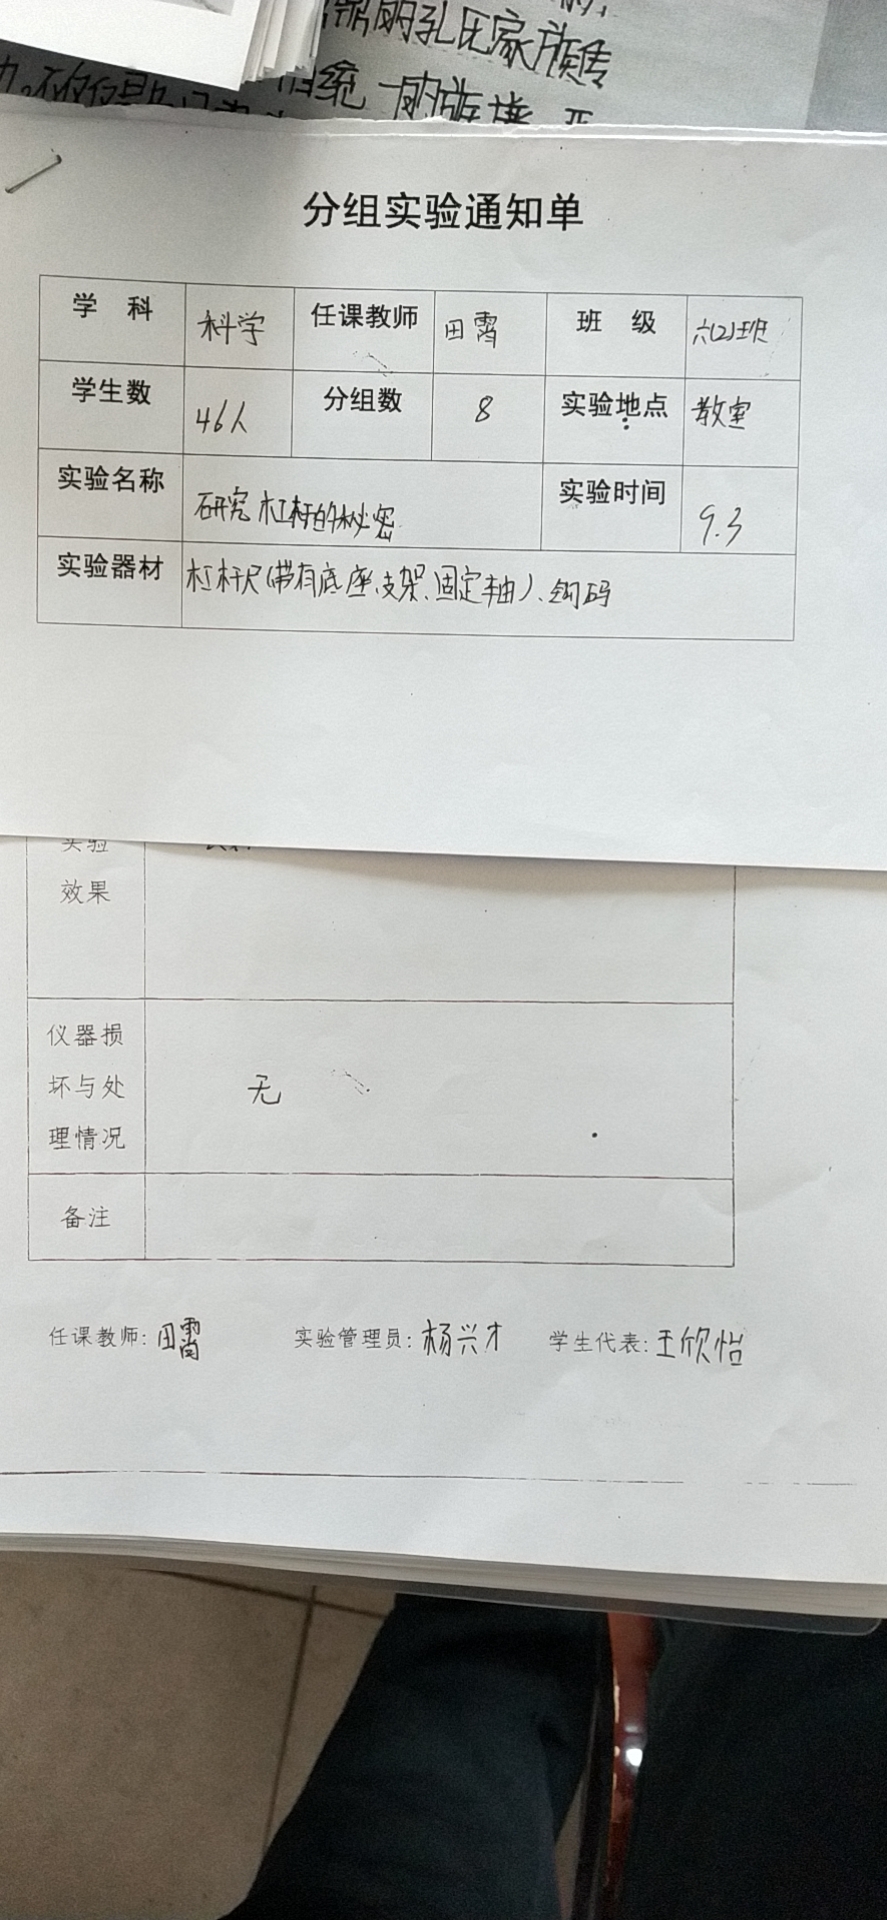 鼎的孔氏家族传
分组实验通知单
学 科 科学 任课教师 田霄 班 级 六(2)班
学生数 46人 分组数 8 实验地点 教室
实验名称 研究杠杆的秘密 实验时间 9.3
实验器材 杠杆尺(带有底座、支架、固定轴)、钩码
实验
效果
仪器损
坏与处
理情况
无
备注
任课教师: 田霄 实验管理员: 杨兴才 学生代表: 王欣怡